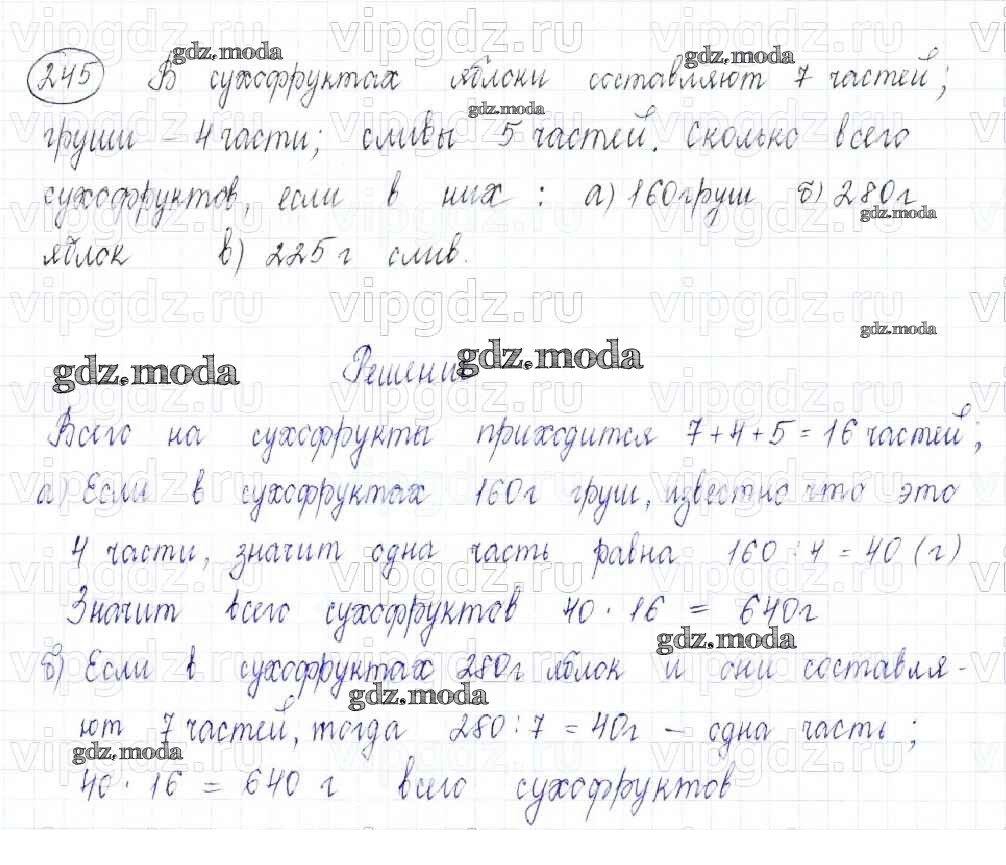 245 В сухофруктах яблоки составляют 7 частей;
груши - 4 части; сливы 5 частей. Сколько всего
сухофруктов, если в них : а) 160 груш б) 280г
яблок в) 225 г слив.
Решение
Всего на сухофрукты приходится 7+4+5=16 частей;
а) Если в сухофруктах 160г груш, известно что это
4 части, значит одна часть равна 160 : 4 = 40 (г)
Значит всего сухофруктов 40 · 16 = 640г
б) Если в сухофруктах 280г яблок и они составля-
ют 7 частей, тогда 280 : 7 = 40г - одна часть ;
40 · 16 = 640 г всего сухофруктов
gdz.moda
vipgdz.ru